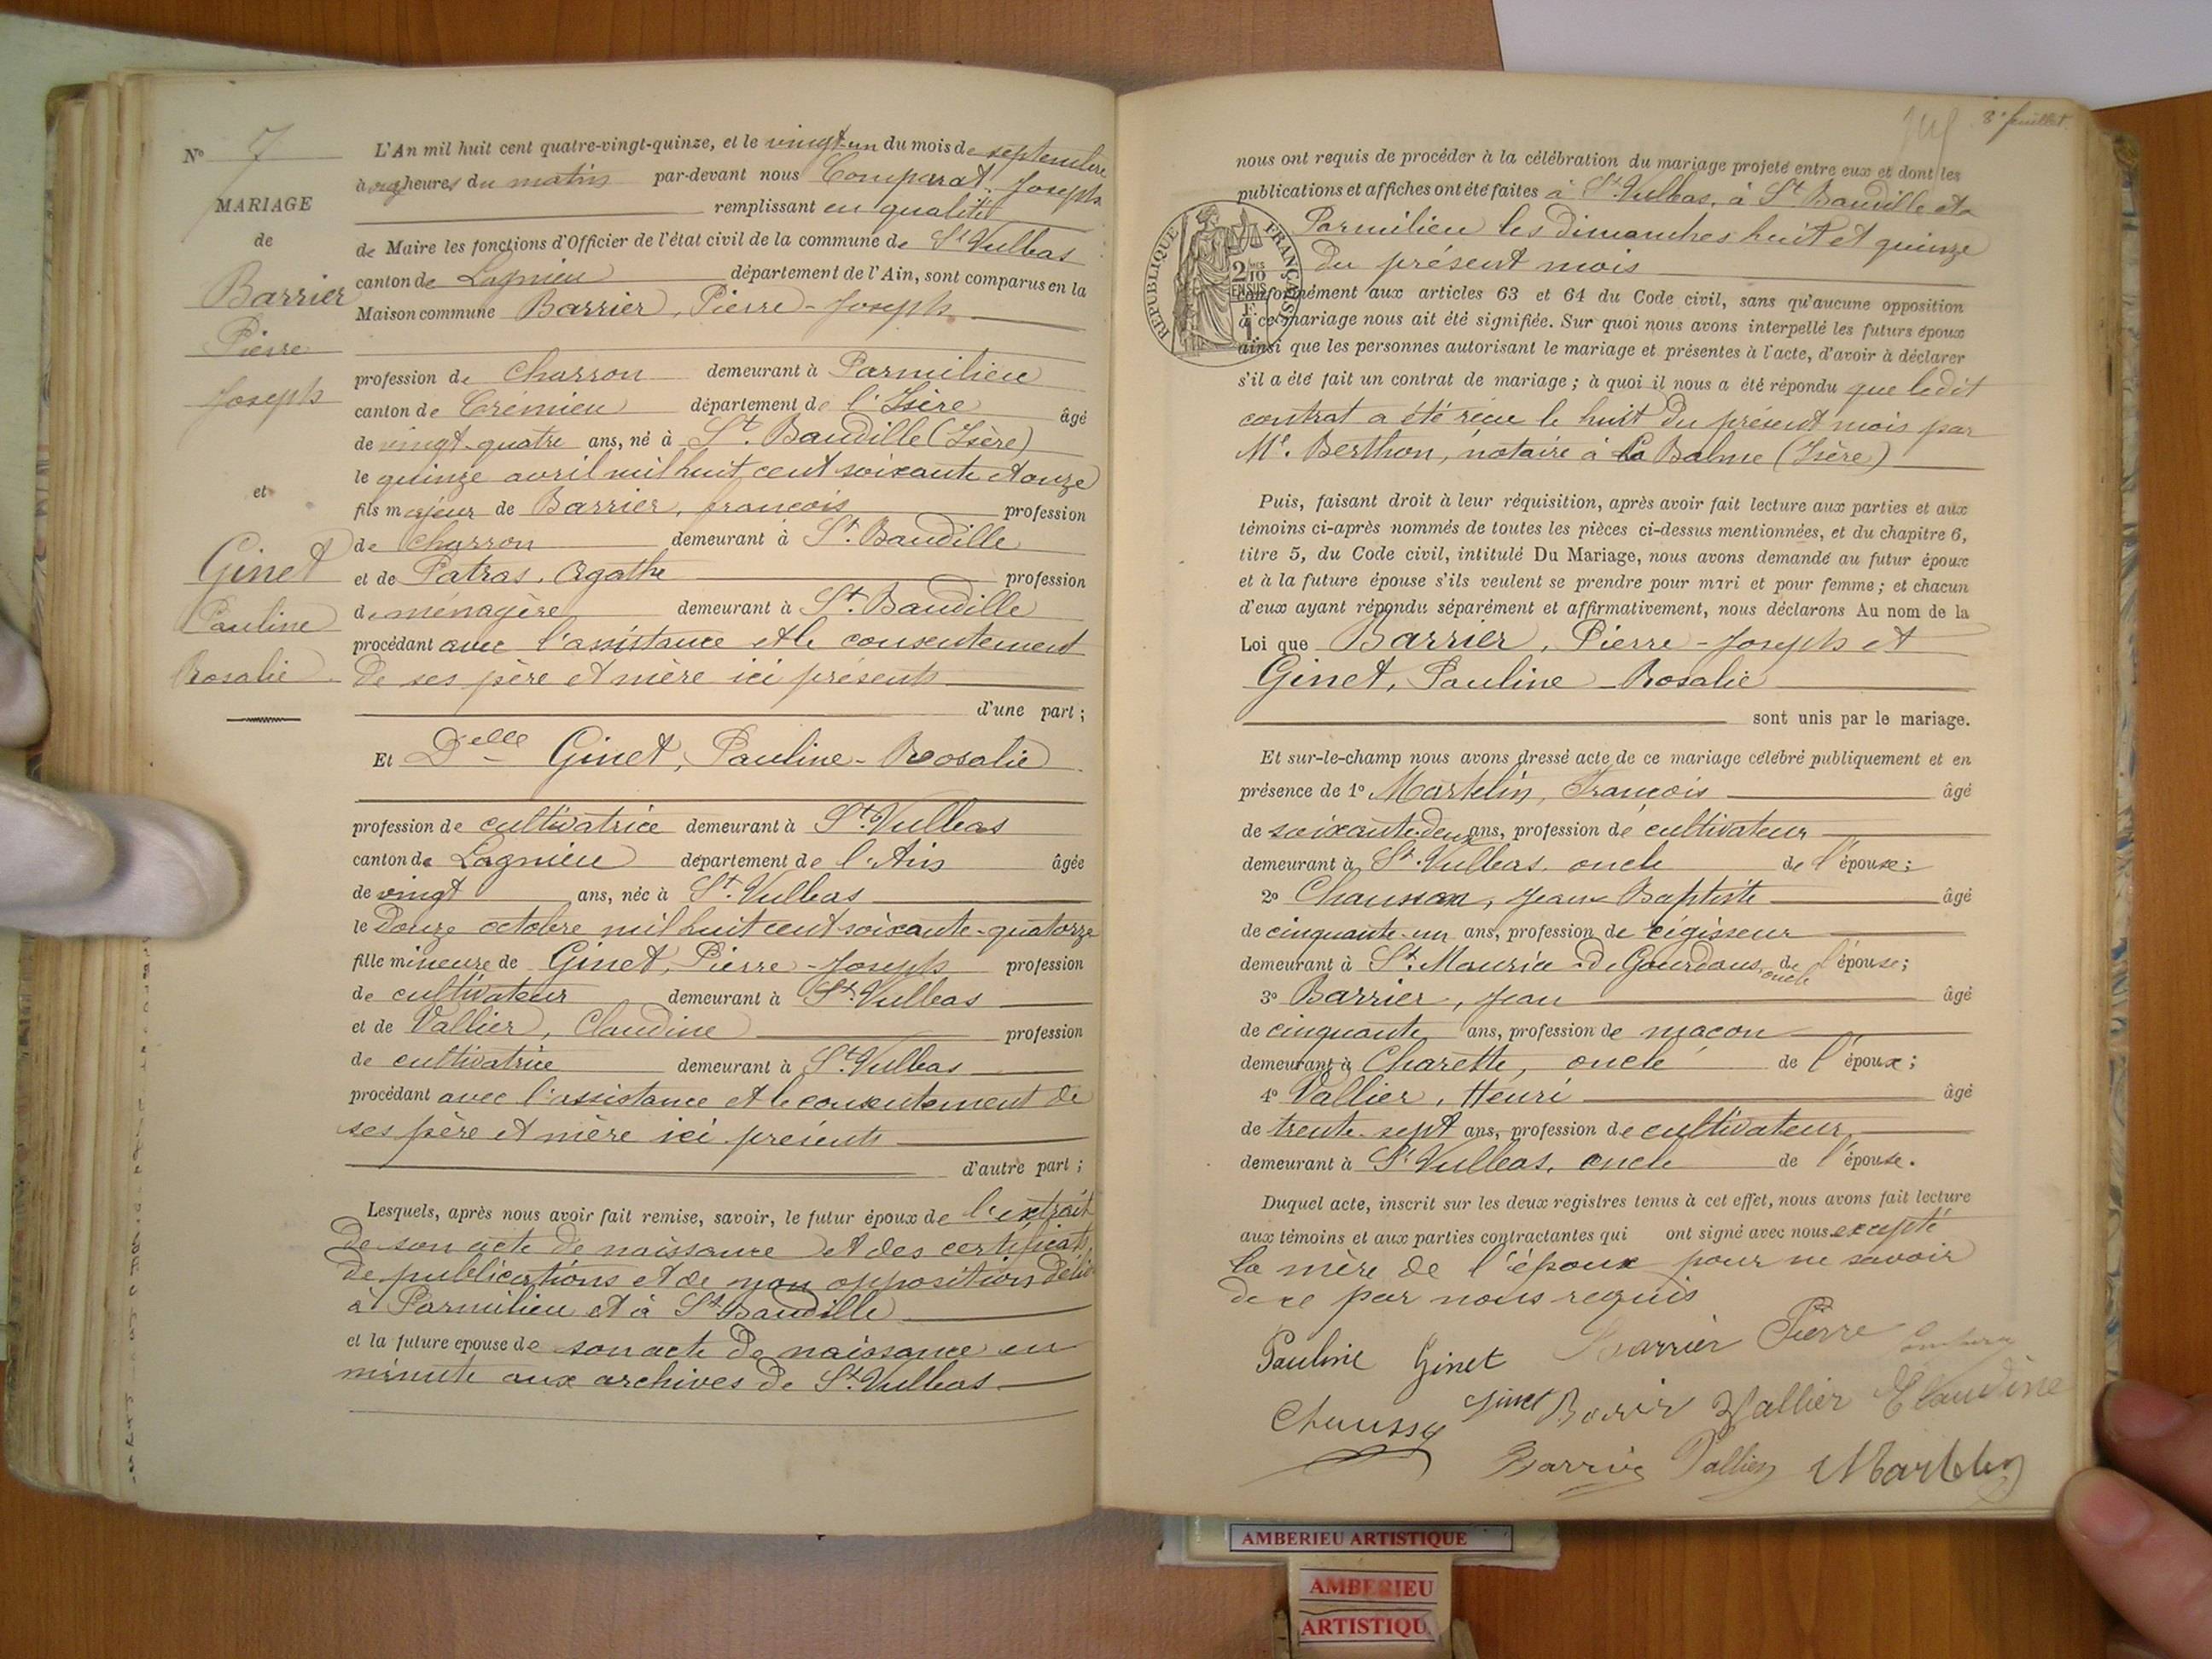 N° 7
MARIAGE
de
Barrier
Pierre
Joseph
et
Ginet
Pauline
Rosalie
L'An mil huit cent quatre-vingt-quinze, et le vingt-un du mois de septembre
à onze heures du matin par-devant nous Comparat Joseph
remplissant en qualité
de Maire les fonctions d'Officier de l'état civil de la commune de St Vulbas
canton de Lagnieu département de l'Ain, sont comparus en la
Maison commune Barrier, Pierre-Joseph
profession de Charron demeurant à Parmilieu
canton de Crémieu département de l'Isère âgé
de vingt-quatre ans, né à St. Baudille (Isère)
le quinze avril mil huit cent soixante et onze
fils majeur de Barrier, françois profession
de charron demeurant à St. Baudille
et de Patras, Agathe profession
de ménagère demeurant à St. Baudille
procédant avec l'assistance et le consentement
de ses père et mère ici présents
d'une part;
Et Delle Ginet, Pauline-Rosalie
profession de cultivatrice demeurant à St. Vulbas
canton de Lagnieu département de l'Ain âgée
de vingt ans, née à St. Vulbas
le douze octobre mil huit cent soixante-quatorze
fille mineure de Ginet, Pierre-Joseph profession
de cultivateur demeurant à St. Vulbas
et de Vallier, Claudine profession
de cultivatrice demeurant à St. Vulbas
procédant avec l'assistance et le consentement de
ses père et mère ici présents
d'autre part;
Lesquels, après nous avoir fait remise, savoir, le futur époux de l'extrait
de son acte de naissance et des certificats
de publications et de non opposition
à Parmilieu et à St. Baudille
et la future epouse de son acte de naissance en
minute aux archives de St. Vulbas
8e feuillet
nous ont requis de procéder à la célébration du mariage projeté entre eux et dont les
publications et affiches ont été faites à St. Vulbas, à St. Baudille et à
Parmilieu les dimanches huit et quinze
du présent mois
RÉPUBLIQUE FRANÇAISE
2/10 EN SUS
conformément aux articles 63 et 64 du Code civil, sans qu'aucune opposition
à ce mariage nous ait été signifiée. Sur quoi nous avons interpellé les futurs époux
ainsi que les personnes autorisant le mariage et présentes à l'acte, d'avoir à déclarer
s'il a été fait un contrat de mariage; à quoi il nous a été répondu que ledit
contrat a été reçu le huit du présent mois par
Me. Berthon, notaire à La Balme (Isère)
Puis, faisant droit à leur réquisition, après avoir fait lecture aux parties et aux
témoins ci-après nommés de toutes les pièces ci-dessus mentionnées, et du chapitre 6,
titre 5, du Code civil, intitulé Du Mariage, nous avons demandé au futur époux
et à la future épouse s'ils veulent se prendre pour mari et pour femme; et chacun
d'eux ayant répondu séparément et affirmativement, nous déclarons Au nom de la
Loi que Barrier, Pierre-Joseph et
Ginet, Pauline-Rosalie
sont unis par le mariage.
Et sur-le-champ nous avons dressé acte de ce mariage célébré publiquement et en
présence de 1° Martelin, François âgé
de soixante-deux ans, profession de cultivateur
demeurant à St. Vulbas, oncle de l'épouse;
2° Chausson, Jean Baptiste âgé
de cinquante-un ans, profession de régisseur
demeurant à St. Maurice-de Gourdans, oncle de l'épouse;
3° Barrier, Jean âgé
de cinquante ans, profession de maçon
demeurant à Charette, oncle de l'époux;
4° Vallier, Henri âgé
de trente-sept ans, profession de cultivateur,
demeurant à St Vulbas, oncle de l'épouse.
Duquel acte, inscrit sur les deux registres tenus à cet effet, nous avons fait lecture
aux témoins et aux parties contractantes qui ont signé avec nous excepté
la mère de l'époux pour ne savoir
de ce par nous requis
Pauline Ginet Barrier Pierre
Ginet Vallier Claudine
Barrier Vallier Martelin
AMBERIEU ARTISTIQUE
AMBERIEU
ARTISTIQU